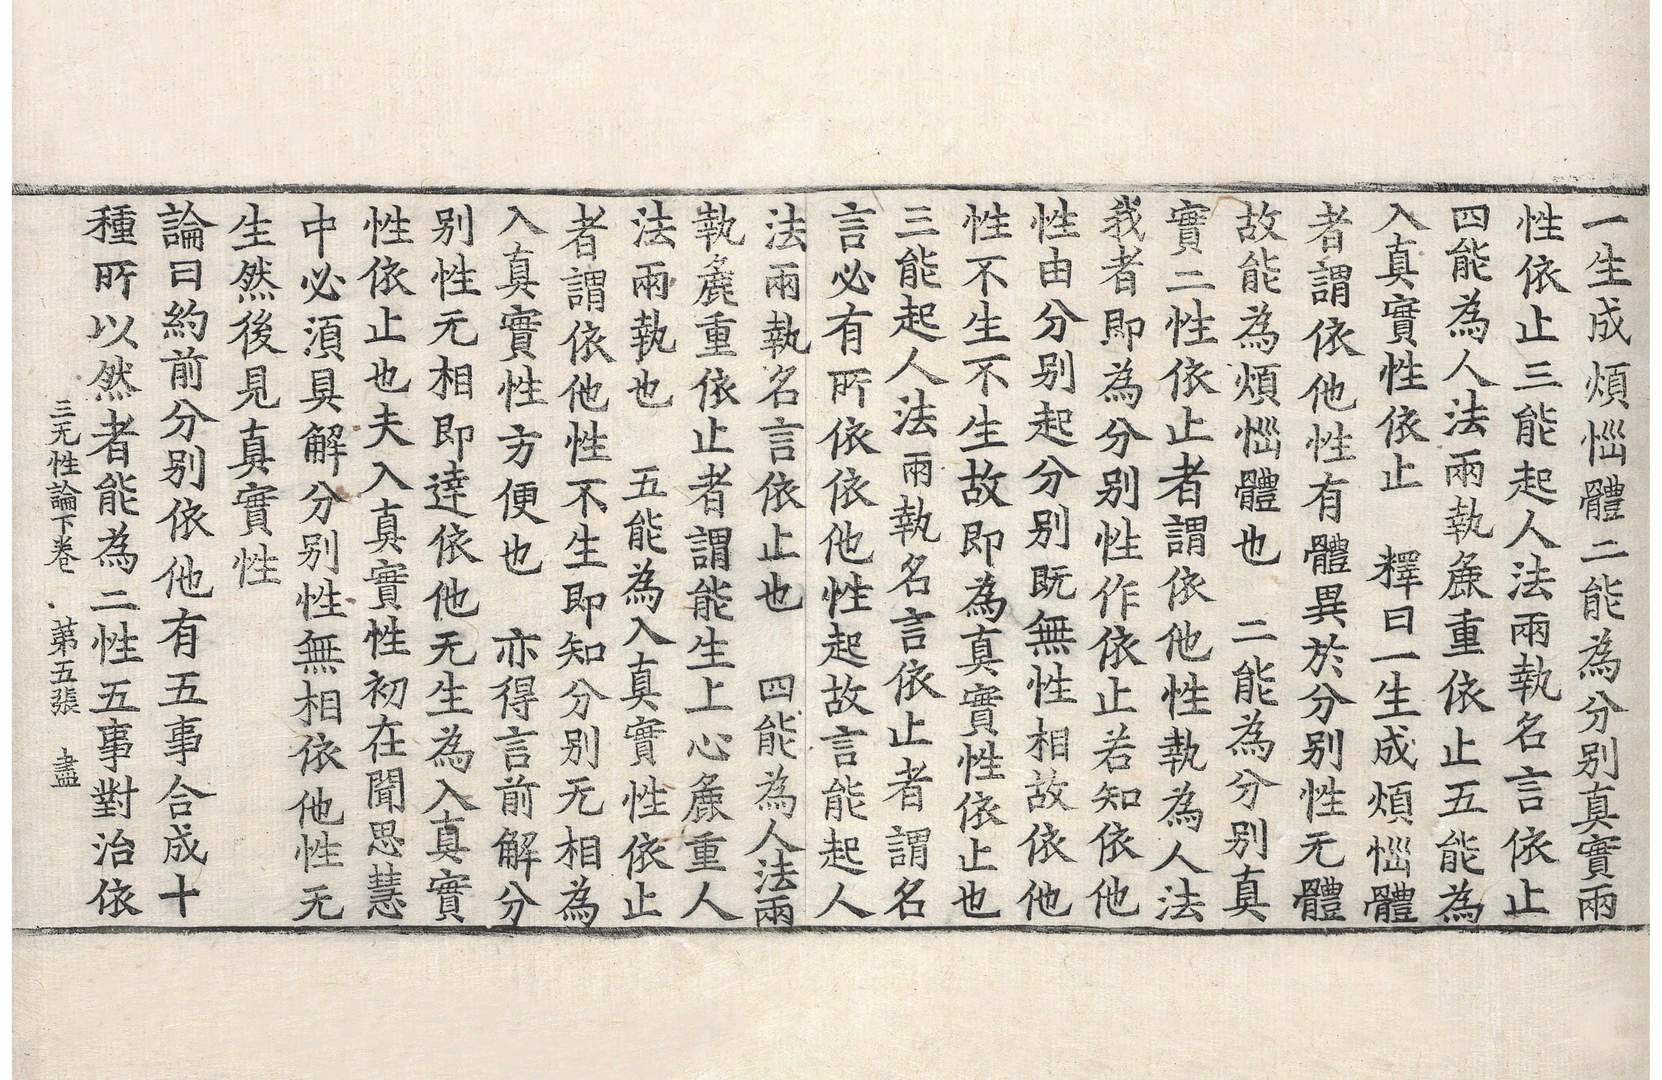 一生成煩惱體二能為分别真實兩
性依止三能起人法兩執名言依止
四能為人法兩執麁重依止五能為
入真實性依止　釋曰一生成煩惱體
者謂依他性有體異於分别性无體
故能為煩惱體也　二能為分别真
實二性依止者謂依他性執為人法
我者即為分别性作依止若知依他
性由分别起分别既無性相故依他
性不生不生故即為真實性依止也
三能起人法兩執名言依止者謂名
言必有所依依他性起故言能起人
法兩執名言依止也　四能為人法兩
執麁重依止者謂能生上心麁重人
法兩執也　五能為入真實性依止
者謂依他性不生即知分别无相為
入真實性方便也　亦得言前解分
别性无相即達依他无生為入真實
性依止也夫入真實性初在聞思慧
中必須具解分别性無相依他性无
生然後見真實性
論曰約前分别依他有五事合成十
三无性論下卷　第五張　盡
種所以然者能為二性五事對治依